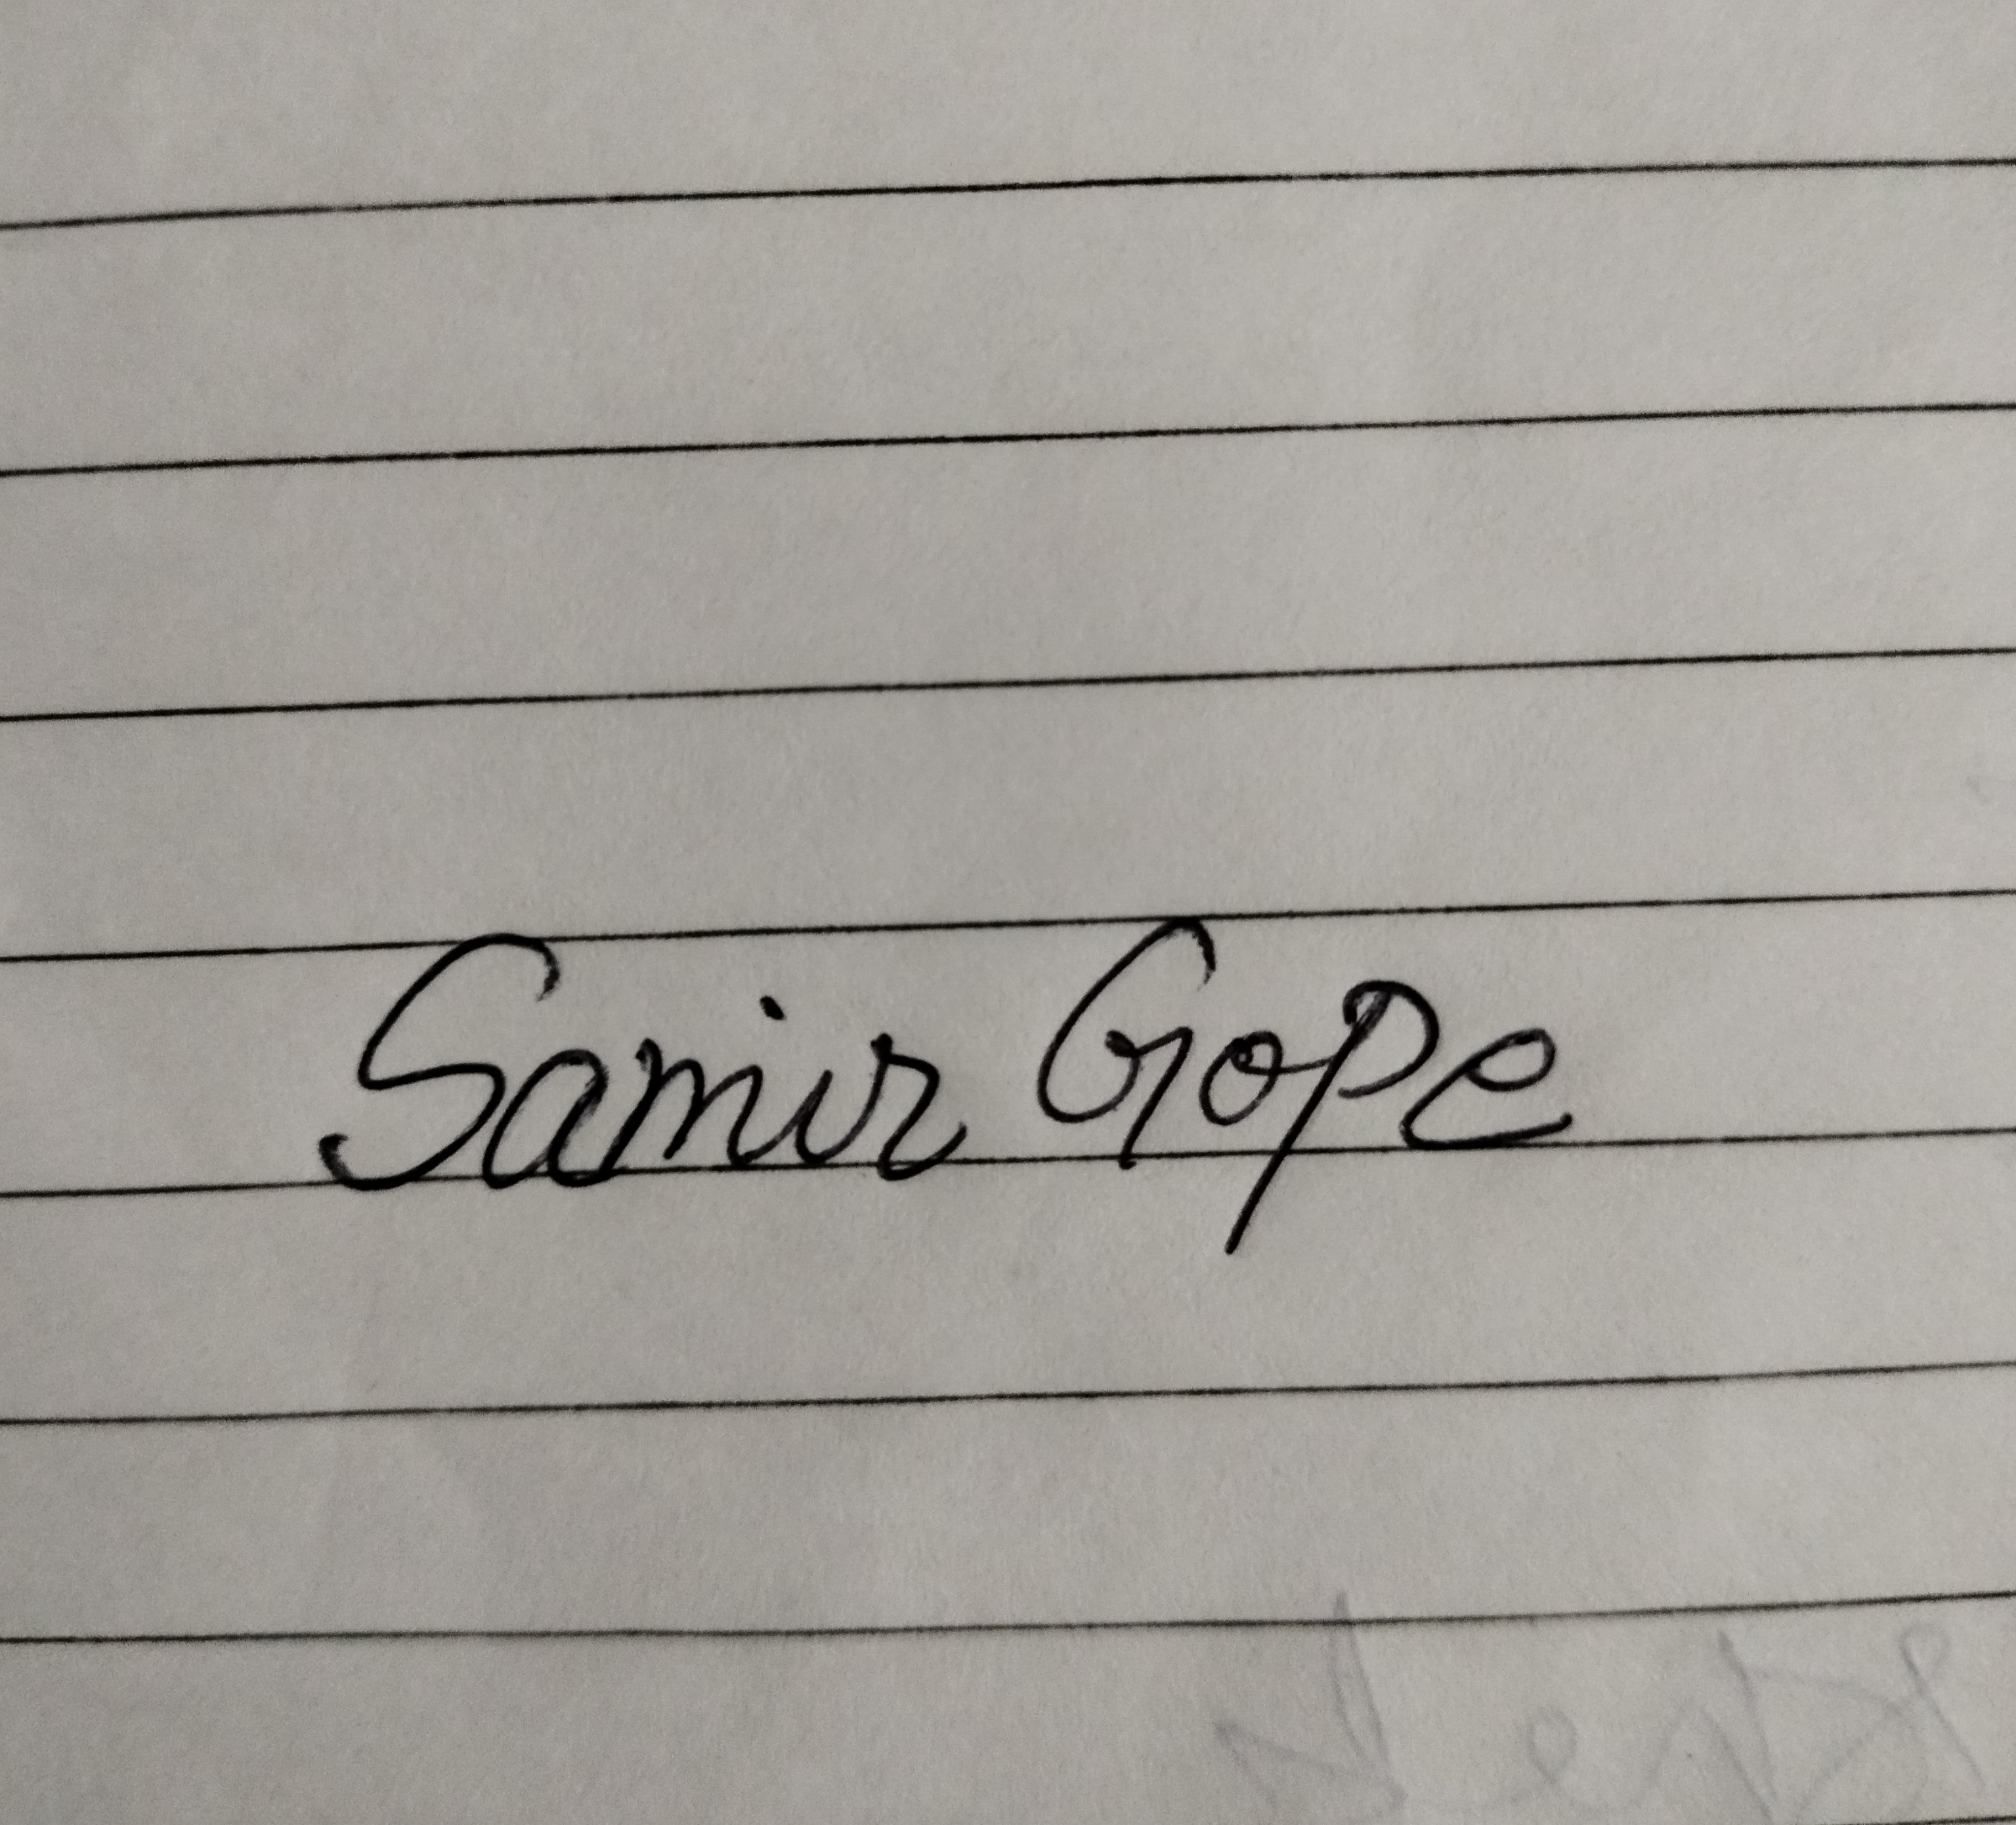 Samir Gope